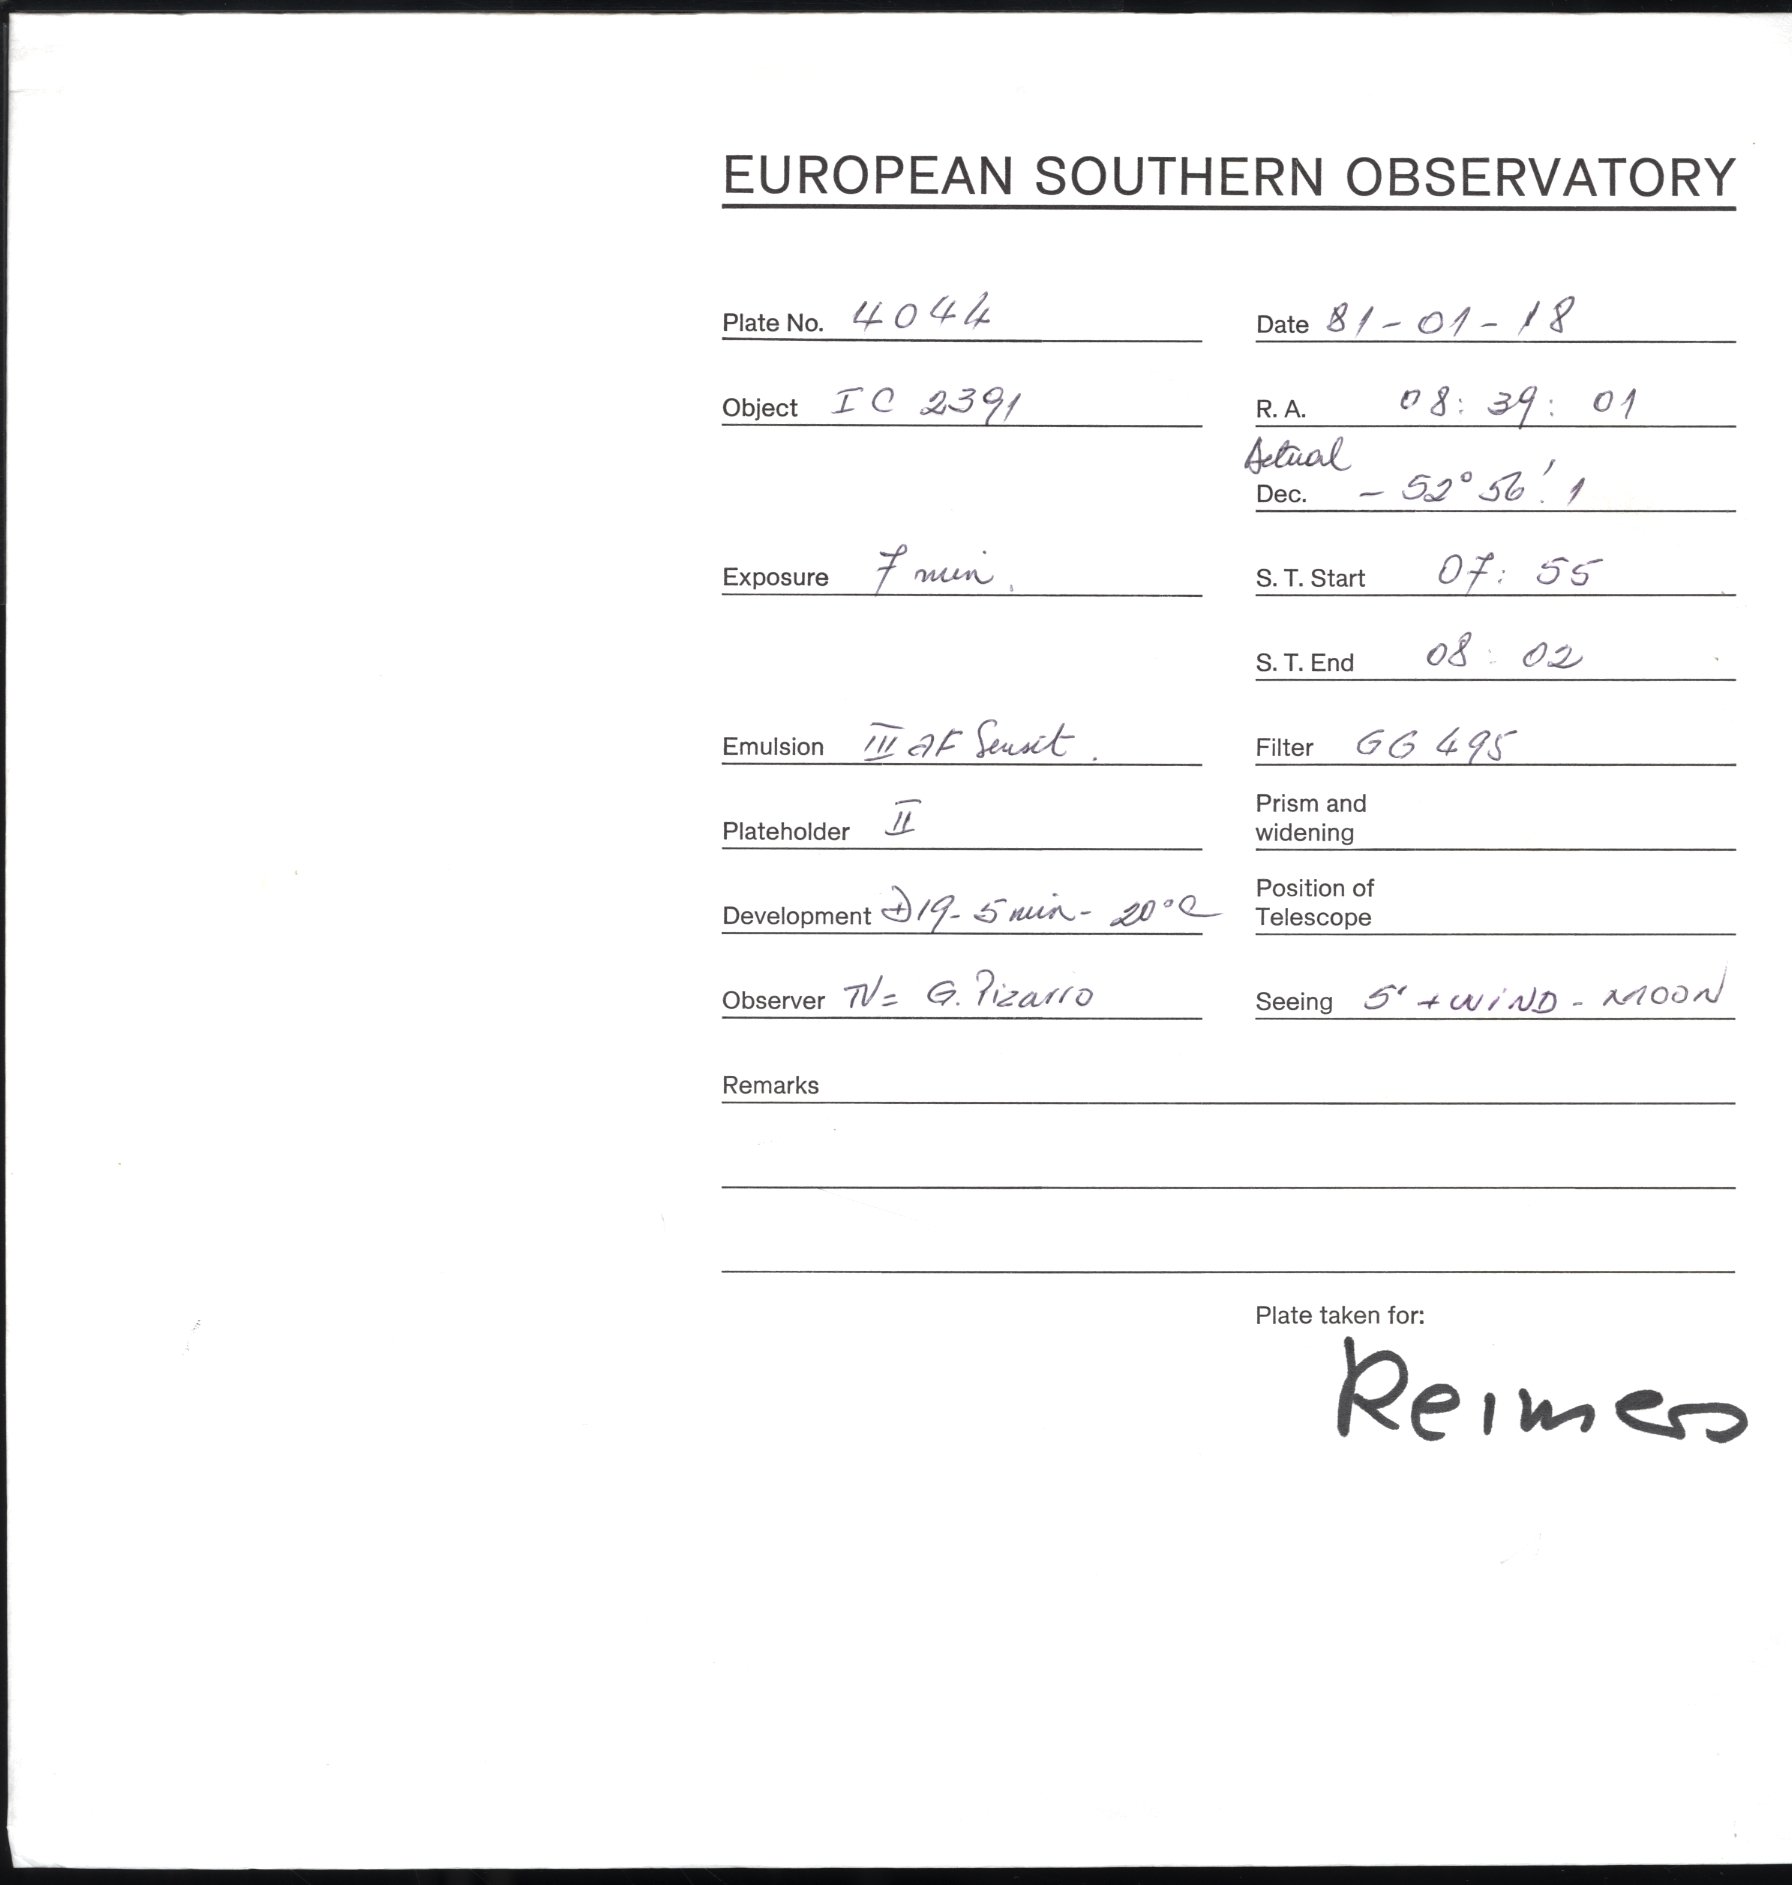 EUROPEAN SOUTHERN OBSERVATORY
Plate No. 4044 Date 81-01-18
Object IC 2391 R. A. 08: 39: 01
Actual
Dec. - 52° 56'. 1
Exposure 7 min. S. T. Start 07: 55
S. T. End 08: 02
Emulsion III aF Sensit. Filter GG 495
Plateholder II Prism and widening
Development D19- 5 min - 20°C Position of Telescope
Observer = G. Pizarro Seeing 5' + WIND - MOON
Remarks
Plate taken for:
Reimers